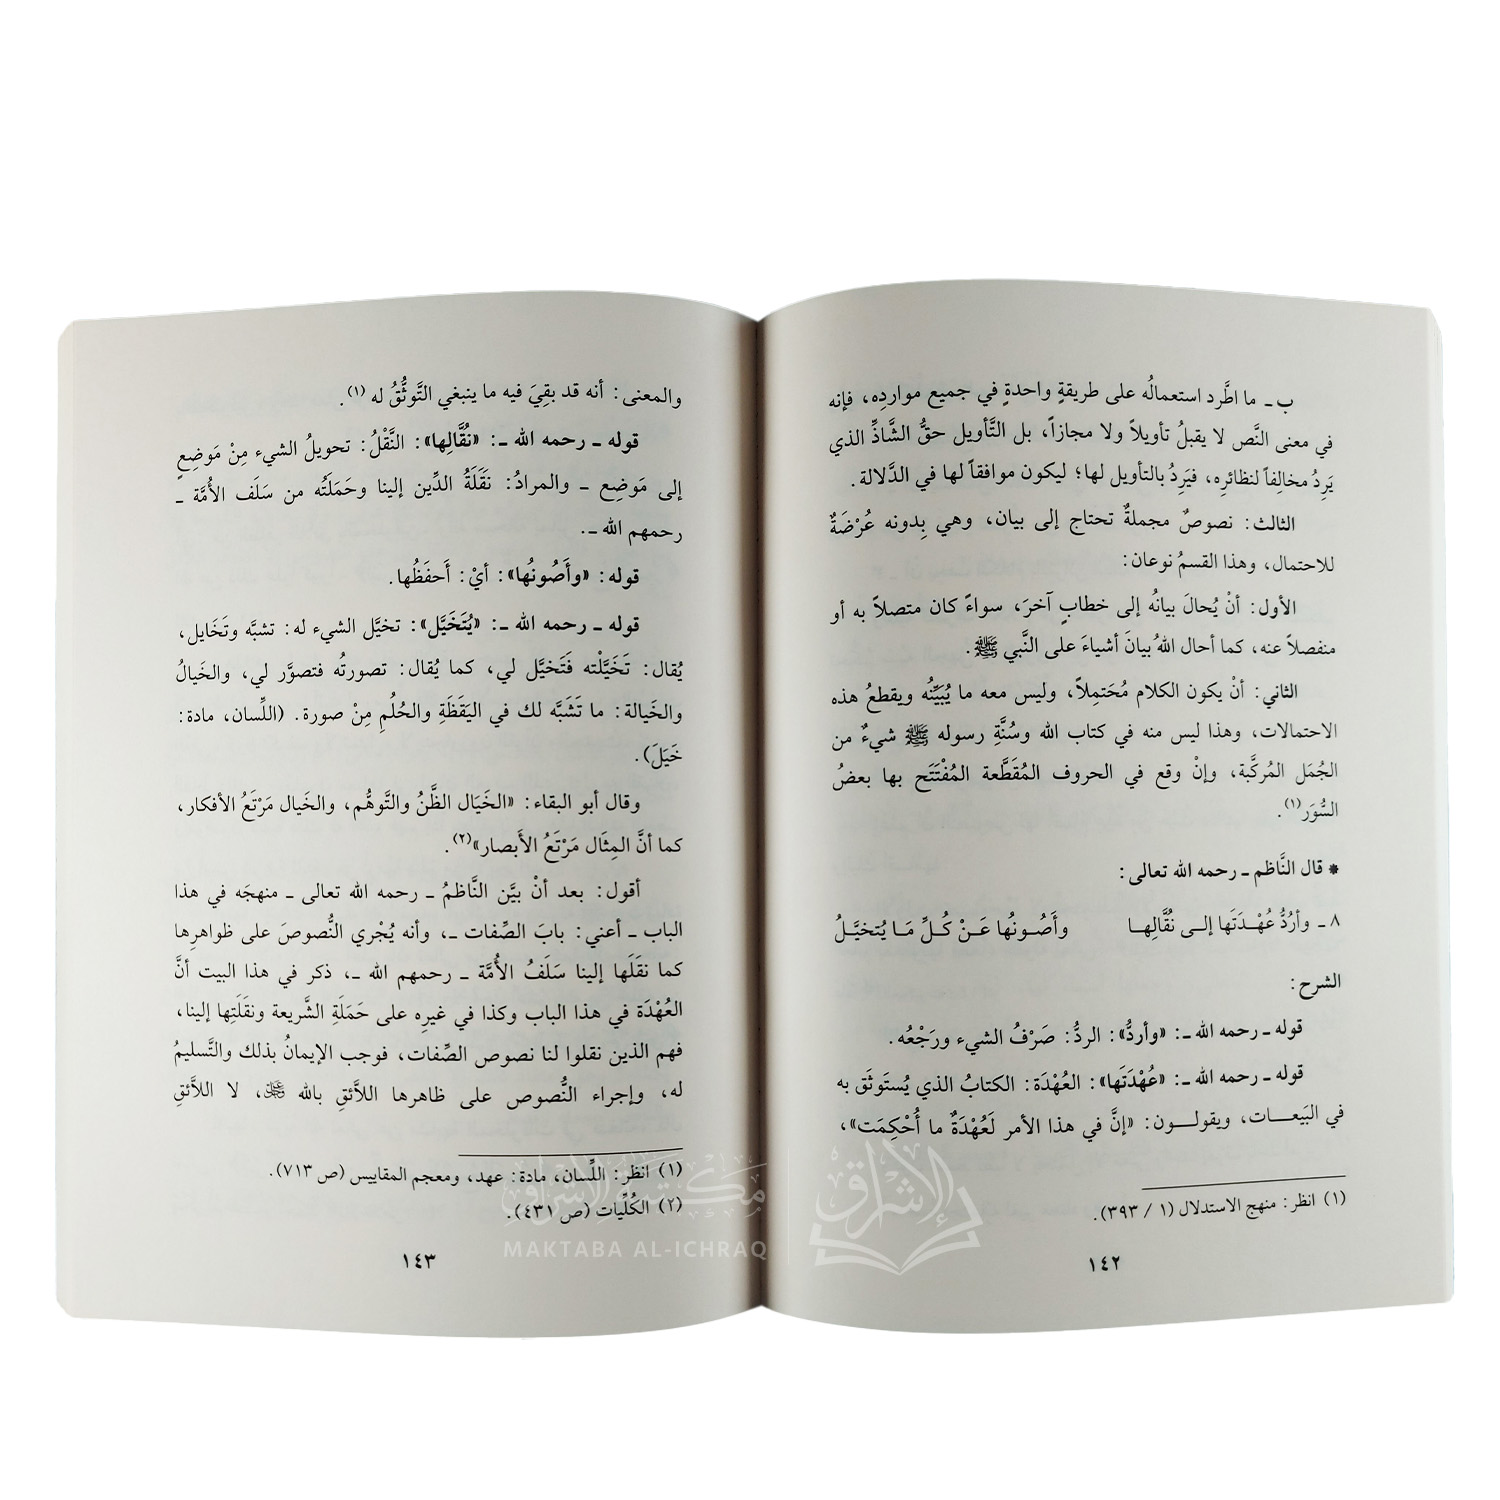 ب ـ ما اطَّرد استعمالُه على طريقةٍ واحدةٍ في جميع مواردِه، فإنه
في معنى النَّص لا يقبلُ تأويلاً ولا مجازاً، بل التَّأويل حقُّ الشَّاذِّ الذي
يَرِدُ مخالِفاً لنظائرِه، فيَرِدُ بالتأويل لها؛ ليكون موافقاً لها في الدَّلالة.
الثالث: نصوصٌ مجملةٌ تحتاج إلى بيان، وهي بِدونه عُرْضَةٌ
للاحتمال، وهذا القسمُ نوعان:
الأول: أنْ يُحالَ بيانُه إلى خطابٍ آخرَ، سواءً كان متصلاً به أو
منفصلاً عنه، كما أحال اللهُ بيانَ أشياءَ على النَّبي ﷺ.
الثاني: أنْ يكون الكلام مُحَتمِلاً، وليس معه ما يُبَيِّنُه ويقطعُ هذه
الاحتمالات، وهذا ليس منه في كتاب الله وسُنَّةِ رسوله ﷺ شيءٌ من
الجُمَل المُركَّبة، وإنْ وقع في الحروف المُقَطَّعة المُفْتَتَح بها بعضُ
السُّوَر(١).
* قال النَّاظم ـ رحمه الله تعالى:
٨ ـ وأرُدُّ عُهْدَتَها إلى نُقَّالِها وأَصُونُها عَنْ كُلِّ مَا يُتخيَّلُ
الشرح:
قوله ـ رحمه الله ـ: «وأردُّ»: الردُّ: صَرْفُ الشيء ورَجْعُه.
قوله ـ رحمه الله ـ: «عُهْدَتَها»: العُهْدَة: الكتابُ الذي يُستَوثَق به
في البَيعات، ويقولون: «إنَّ في هذا الأمر لَعُهْدَةٌ ما أُحْكِمَت»،
(١) انظر: منهج الاستدلال (١ / ٣٩٣).
١٤٢
والمعنى: أنه قد بقِيَ فيه ما ينبغي التَّوثُّقُ له (١).
قوله ـ رحمه الله ـ: «نُقَّالِها»: النَّقْلُ: تحويلُ الشيء مِنْ مَوضِعٍ
إلى مَوضِع ـ والمرادُ: نَقَلَةُ الدِّين إلينا وحَمَلَتُه من سَلَف الأُمَّة ـ
رحمهم الله ـ.
قوله: «وأَصُونُها»: أيْ: أَحفَظُها.
قوله ـ رحمه الله ـ: «يُتَخَيَّل»: تخيَّل الشيء له: تشبَّه وتَخَايل،
يُقال: تَخَيَّلْته فَتَخيَّل لي، كما يُقال: تصورتُه فتصوَّر لي، والخَيالُ
والخَيالة: ما تَشَبَّه لك في اليَقَظَةِ والحُلُمِ مِنْ صورة. (اللِّسان، مادة:
خَيَلَ).
وقال أبو البقاء: «الخَيَال الظَّنُ والتَّوهُّم، والخَيال مَرْتَعُ الأفكار،
كما أنَّ المِثَال مَرْتَعُ الأَبصار»(٢).
أقول: بعد أنْ بيَّن النَّاظمُ ـ رحمه الله تعالى ـ منهجَه في هذا
الباب ـ أعني: بابَ الصِّفات ـ، وأنه يُجْري النُّصوصَ على ظواهرِها
كما نقَلَها إلينا سَلَفُ الأُمَّة ـ رحمهم الله ـ، ذكر في هذا البيت أنَّ
العُهْدَة في هذا الباب وكذا في غيرِه على حَمَلَةِ الشَّريعة ونقَلَتِها إلينا،
فهم الذين نقلوا لنا نصوص الصِّفات، فوجب الإيمانُ بذلك والتَّسليمُ
له، وإجراء النُّصوص على ظاهرها اللاَّئقِ بالله ﷻ، لا اللاَّئقِ
(١) انظر: اللِّسان، مادة: عهد، ومعجم المقاييس (ص ٧١٣).
(٢) الكُلِّيات (ص ٤٣١).
١٤٣
مكتبة الإشراق
MAKTABA AL-ICHRAQ
الإشراق